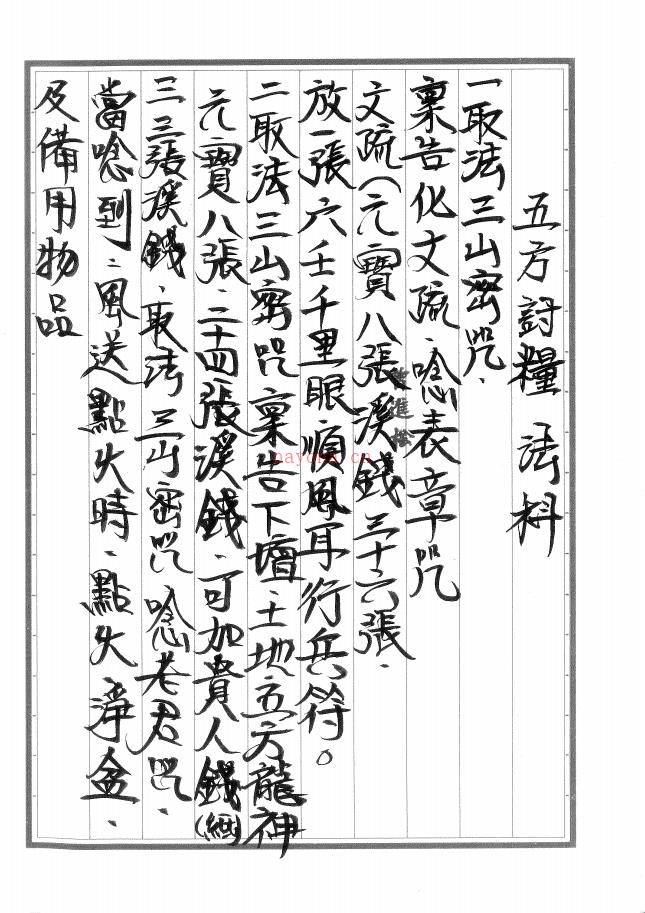 五方討糧 法科
一取法三山密咒、
稟告化文疏、唸表章咒
文疏(元寶八張溪錢三十六張、
放一張六壬千里眼順風耳行兵符。
二取法三山密咒稟告下壇、土地五方龍神
元寶八張、二十四張溪錢、可加貴人錢
三三張溪錢、取法三山密咒、唸老君咒、
當唸到:風送點火時、點火淨盆、
及備用物品
nayona.cn